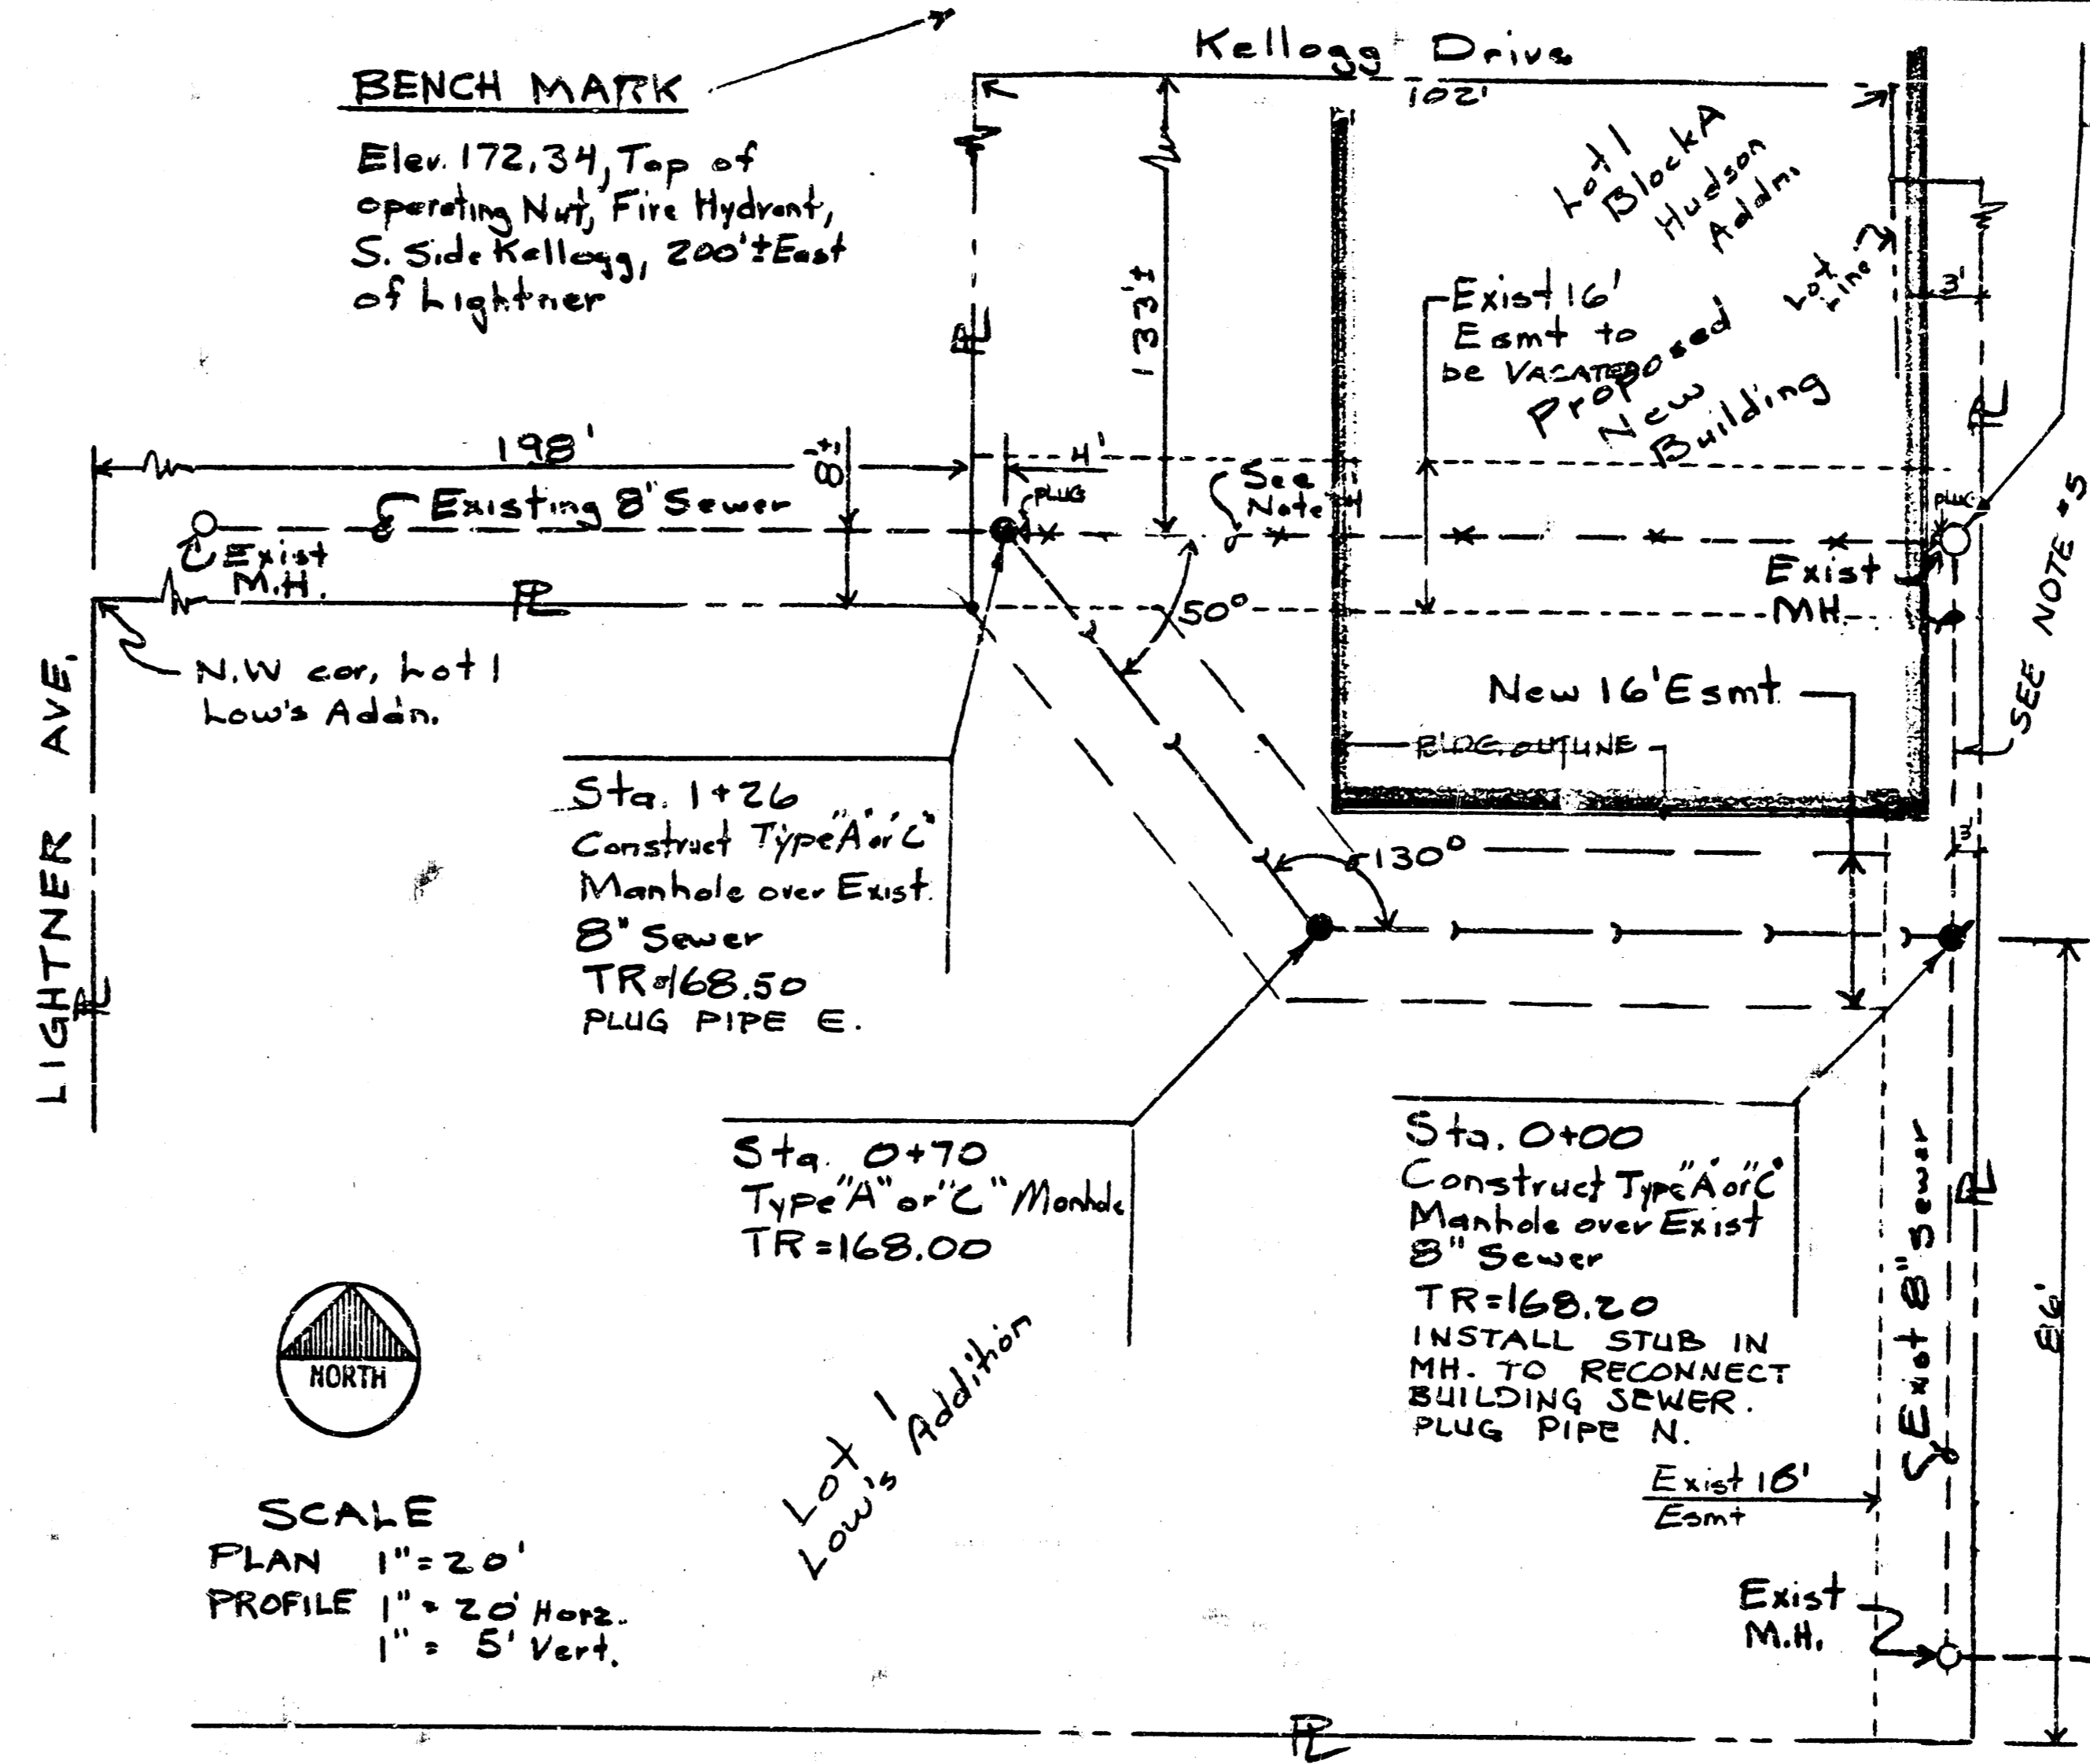 Kellogg Drive
102'
BENCH MARK
Elev. 172.34, Top of
operating Nut, Fire Hydrant,
S. Side Kellogg, 200'± East
of Lightner
Lot 1
Block A
Hudson
Addn.
Lot
Line
3'
133'±
Exist 16'
Esmt to
be VACATED
Proposed
New
Building
PL
PL
198'
8'±
4'
PLUG
See
Note
PLUG
Existing 8" Sewer
Exist
M.H.
Exist
MH.
SEE NOTE #5
PL
50°
N.W cor, Lot 1
Low's Addn.
New 16' Esmt
BLDG. OUTLINE
LIGHTNER AVE.
PL
Sta. 1+26
Construct Type "A" or "C"
Manhole over Exist.
8" Sewer
TR=168.50
PLUG PIPE E.
130°
3'
Sta. 0+70
Type "A" or "C" Manhole
TR=168.00
Sta. 0+00
Construct Type "A" or "C"
Manhole over Exist
8" Sewer
TR=168.20
INSTALL STUB IN
MH. TO RECONNECT
BUILDING SEWER.
PLUG PIPE N.
Exist 8" Sewer
PL
86'
NORTH
Lot 1
Low's Addition
Exist 16'
Esmt
SCALE
PLAN 1"=20'
PROFILE 1"=20' Horz.
1" = 5' Vert.
Exist
M.H.
PL